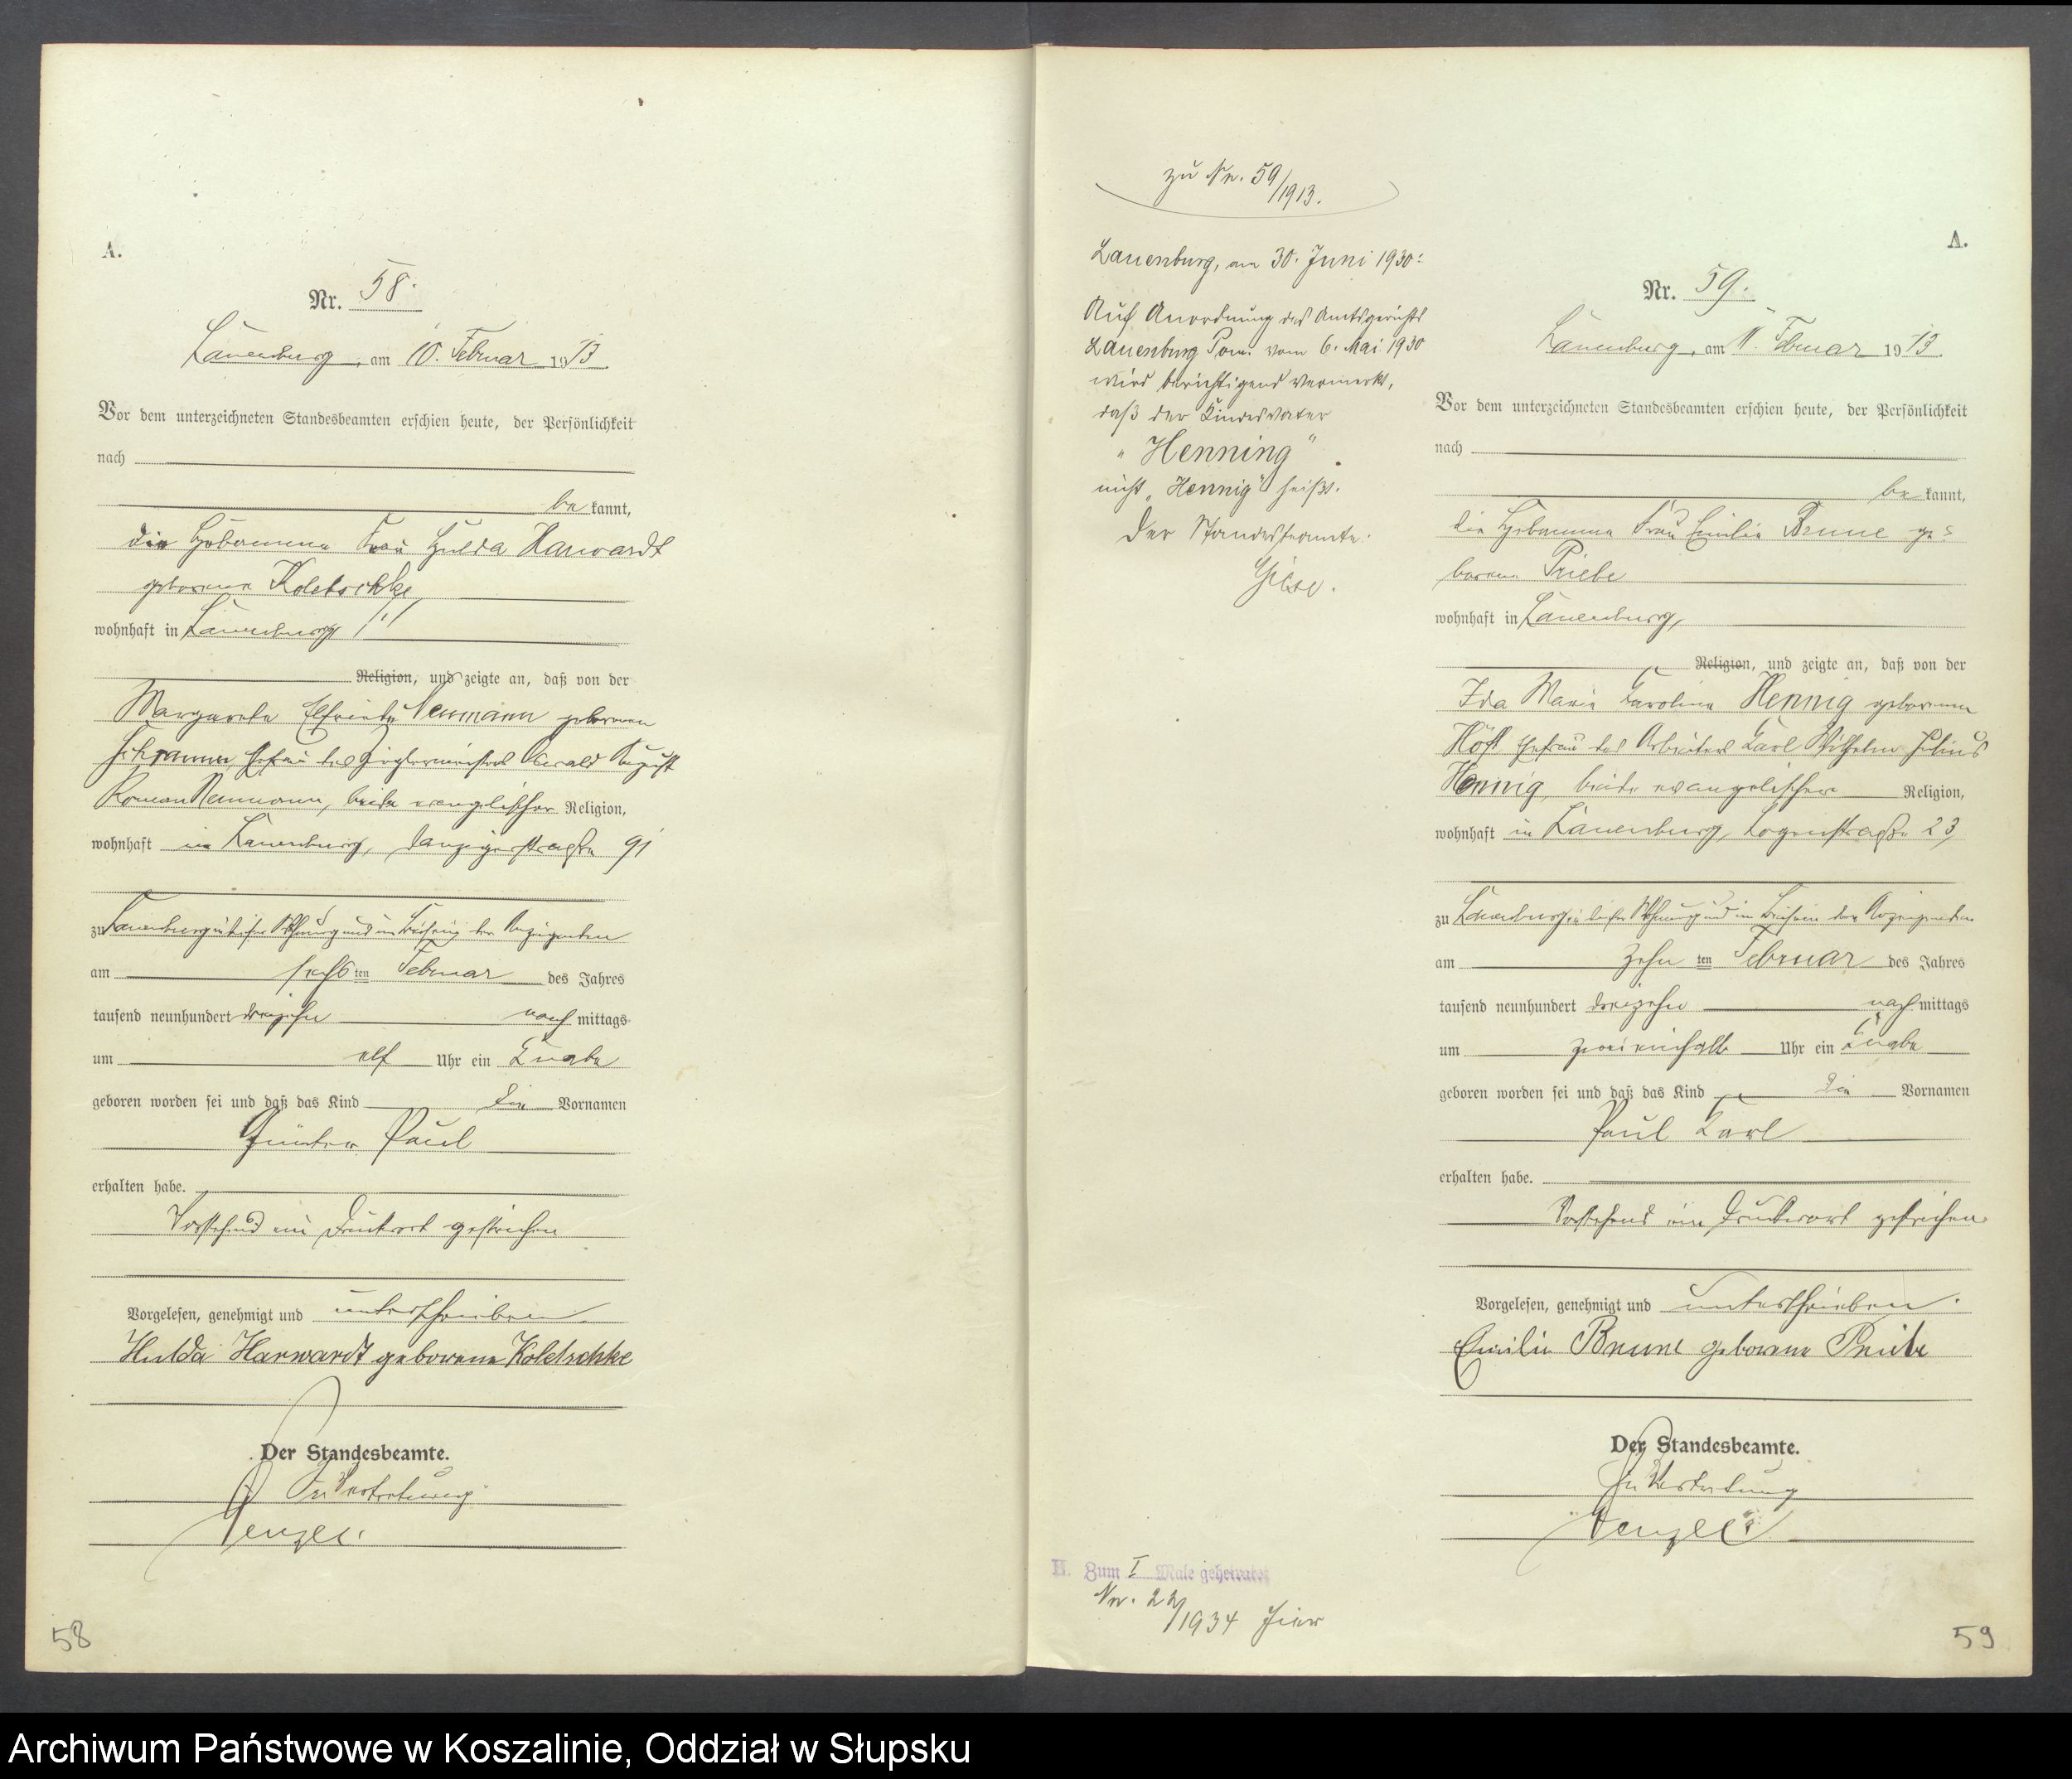 A.
Nr. 58.
Lauenburg, am 10. Februar 1913.
Vor dem unterzeichneten Standesbeamten erschien heute, der Persönlichkeit
nach
be kannt,
die Hebamme Frau Hulda Harwardt
geborene Koletschke
wohnhaft in Lauenburg
Religion, und zeigte an, daß von der
Margarete Elfriede Neumann geborenen
Schramm, Ehefrau des Zieglermeisters Ewald August
Roman Neumann, beide evangelischer Religion,
wohnhaft in Lauenburg, Danzigerstraße 91
zu Lauenburg in dieser Wohnung und im Beisein der Anzeigenden
am sechs ten Februar des Jahres
tausend neunhundert dreizehn nach mittags
um elf Uhr ein Knabe
geboren worden sei und daß das Kind die Vornamen
Günter Paul
erhalten habe.
Vorstehend ein Druckwort gestrichen
Vorgelesen, genehmigt und unterschrieben
Hulda Harwardt geborene Koletschke
Der Standesbeamte.
In Vertretung
58
zu Nr. 59/1913.
Lauenburg, am 30. Juni 1930:
Auf Anordnung des Amtsgerichts
Lauenburg Pom. vom 6. Mai 1930
wird berichtigend vermerkt,
daß der Kindesvater
"Henning"
nicht "Hennig" heißt.
Der Standesbeamte.
H. Zum I Male geheiratet
Nr. 22/1934 hier
A.
Nr. 59.
Lauenburg, am 11. Februar 1913.
Vor dem unterzeichneten Standesbeamten erschien heute, der Persönlichkeit
nach
be kannt,
die Hebamme Frau Emilie Brune ge=
borene Priebe
wohnhaft in Lauenburg,
Religion, und zeigte an, daß von der
Ida Marie Karoline Hennig geborenen
Höft Ehefrau des Arbeiters Karl Wilhelm Julius
Hennig, beide evangelischer Religion,
wohnhaft in Lauenburg, Logenstraße 23,
zu Lauenburg in dieser Wohnung und im Beisein der Anzeigenden
am zehn ten Februar des Jahres
tausend neunhundert dreizehn nach mittags
um zweieinhalb Uhr ein Knabe
geboren worden sei und daß das Kind die Vornamen
Paul Karl
erhalten habe.
Vorstehend ein Druckwort gestrichen
Vorgelesen, genehmigt und unterschrieben.
Emilie Brune geborene Priebe
Der Standesbeamte.
In Vertretung
59
Archiwum Państwowe w Koszalinie, Oddział w Słupsku